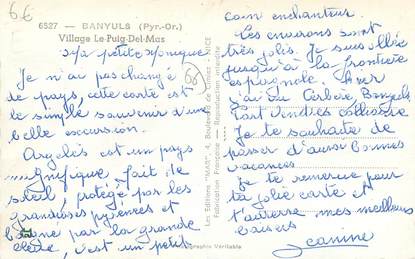 66
6527 - BANYULS (Pyr.-Or.)
Village Le Puig-Del-Mas
Ma petite Monique
Je n'ai pas changé
de pays, cette carte est
le simple souvenir d'une
belle excursion.
Argelès est un pays
magnifique, fait de
soleil, protégé par les
grandioses pyrénées et
baigné par la grande
bleue, c'est un petit
coin enchanteur.
Les environs sont
très jolis. Je suis allée
jusqu'à la frontière
espagnole. Hier
j'ai vu Cerbère, Banyuls
Port vendres collioure
Je te souhaite de
passer d'aussi bonnes
vacances
Je te remercie pour
ta jolie carte et
t'adresse mes meilleurs
baisers
Jeanine
Les Editions "MAR", 4, Boulevard de NICE
Fabrication Française - Reproduction interdite
Photographie Véritable